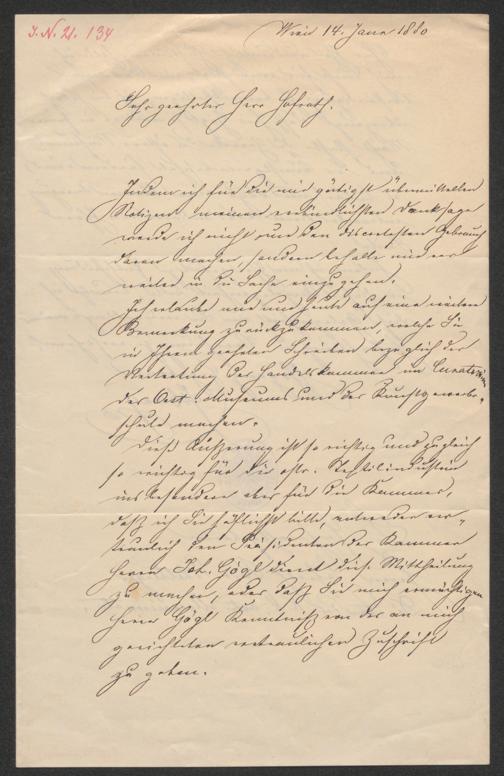 J.N. 21.134
Wien 14. Jann 1880
Sehr geehrter Herr Hofrath.
Indem ich für die mir gütigst übermittelten
Notizen meinen verbindlichsten Dank sage
werde ich nicht nur den discretesten Gebrauch
davon machen, sondern behalte mir vor
weiter in die Sache einzugehen.
Ich erlaube mir nur heute auf eine weitere
Bemerkung zurückzukommen, welche Sie
in Ihrem geehrten Schreiben bezüglich der
Vertretung der Handelskammer im Curatorium
des Oest. Museums und der Kunstgewerbe-
schule machen.
Diese Äußerung ist so richtig und zugleich
so wichtig für die östr. Textilindustrie
insbesondere aber für die Kammer,
daß ich Sie höflichst bitte, entweder ver-
traulich dem Präsidenten der Kammer
Herrn Joh. Gögl direct diese Mittheilung
zu machen, oder daß Sie mich ermächtigen
Herrn Gögl Kenntniß von der an mich
gerichteten vertraulichen Zuschrift
zu geben.